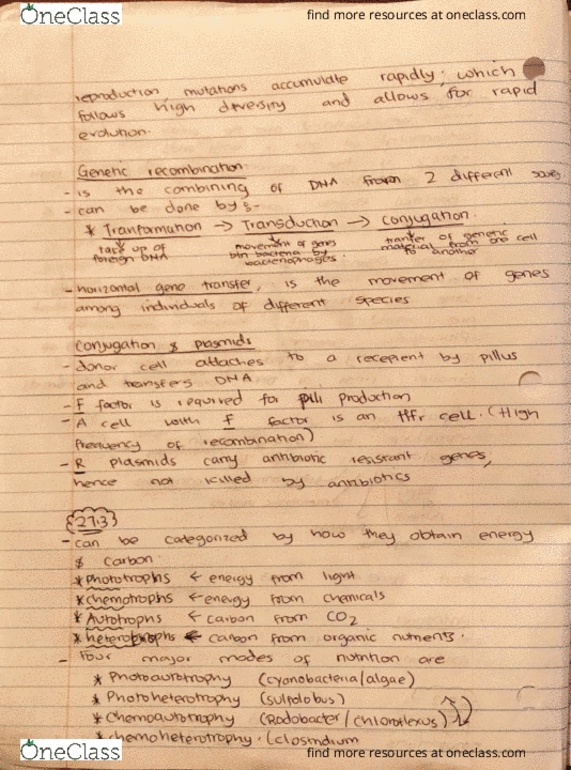 OneClass find more resources at oneclass.com
reproduction mutations accumulate rapidly, which
follows high diversity and allows for rapid
evolution.
Genetic recombination
- is the combining of DNA from 2 different
- can be done by :-
* Tranformation → Transduction → conjugation.
take up of foreign DNA
movement of genes btn bacteria by bacteriophages.
tranfer of genetic material from one cell to another
- horizontal gene transfer, is the movement of genes
among individuals of different species
conjugation & plasmids
- donor cell attaches to a recepient by pillus
and transfers DNA
- F factor is required for pili production
- A cell with F factor is an Hfr cell. (High
frequency of recombination)
- R plasmids carry antibiotic resistant genes,
hence not killed by antibiotics
{27.3}
- can be categorized by how they obtain energy
& carbon
* phototrophs ← energy from light
* chemotrophs ← energy from chemicals
* Autotrophs ← carbon from CO2
* heterotrophs ← carbon from organic nutrients.
- Four major modes of nutrition are
* Photoautotrophy (cyanobacteria/algae)
* Photoheterotrophy (sulfolobus)
* Chemoautotrophy (Rodobacter/chloroflexus)
* chemoheterotrophy. (clostridium
OneClass find more resources at oneclass.com